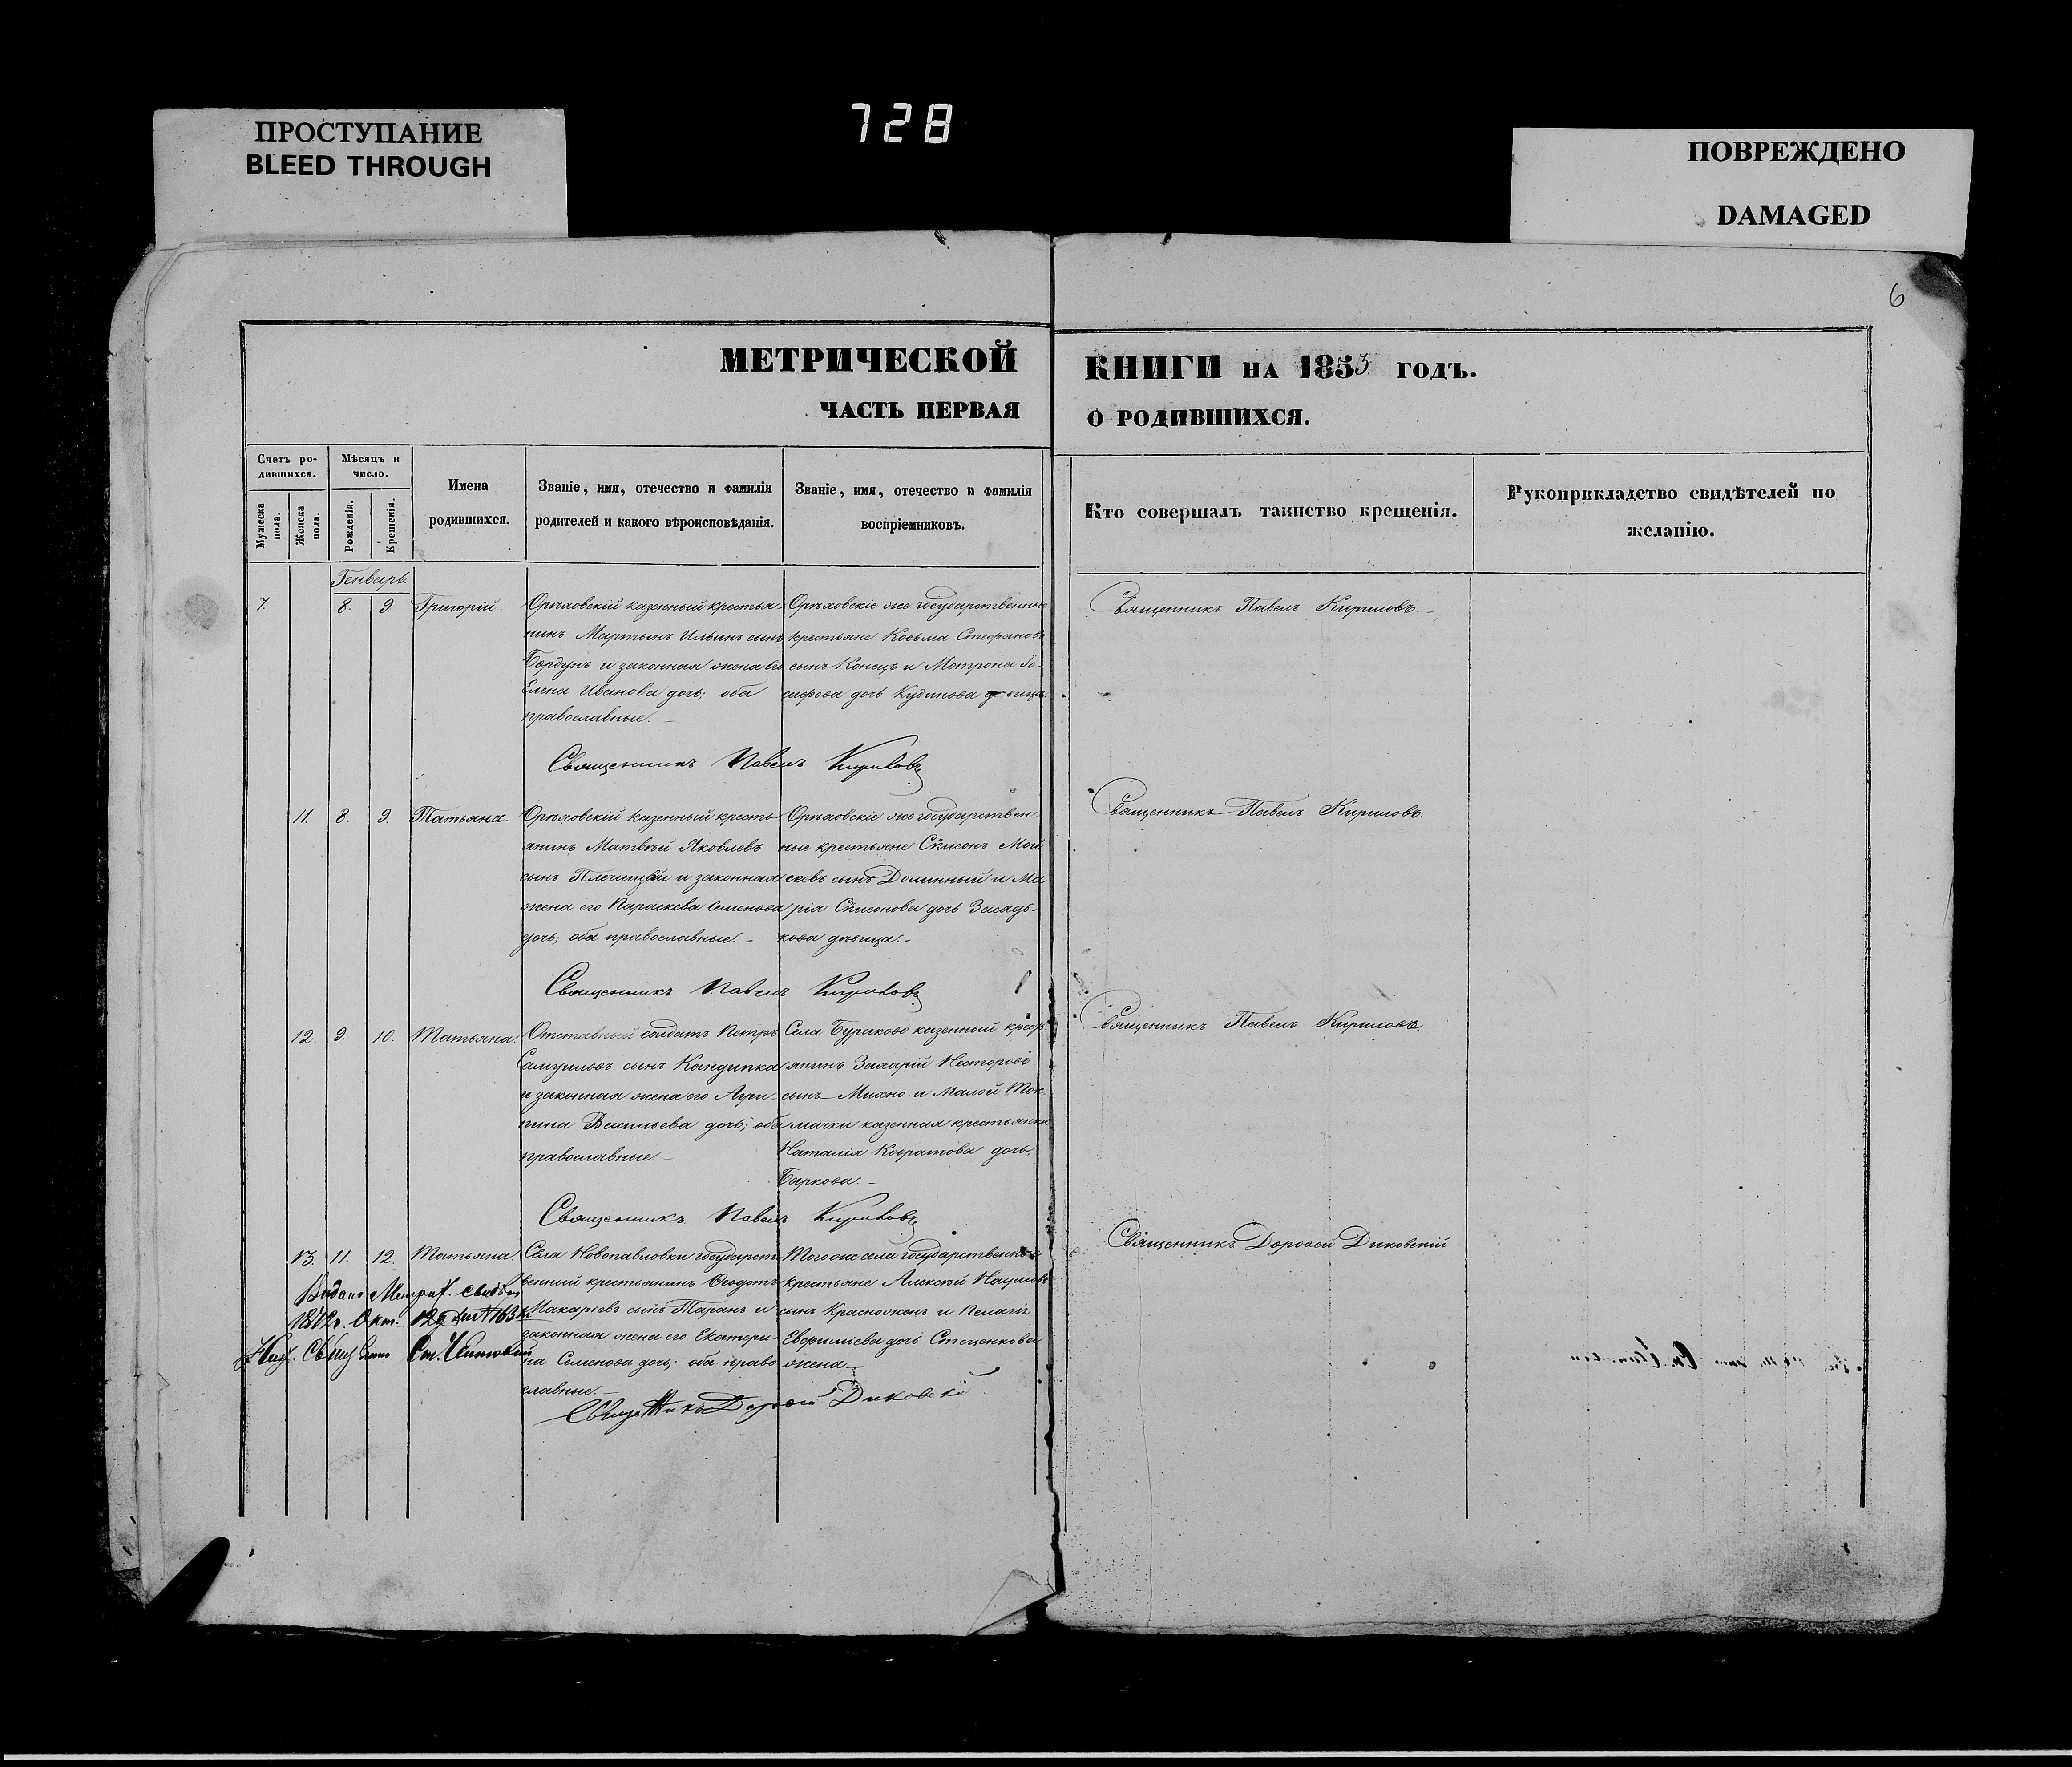 728
ПРОСТУПАНИЕ
BLEED THROUGH
ПОВРЕЖДЕНО
DAMAGED
6
МЕТРИЧЕСКОЙ КНИГИ НА 1853 ГОДЪ.
ЧАСТЬ ПЕРВАЯ О РОДИВШИХСЯ.
Счетъ ро-
дившихся.
Мужеска пола.
Женска пола.
Мѣсяцъ и
число.
Рожденія.
Крещенія.
Имена
родившихся.
Званіе, имя, отечество и фамилія
родителей и какого вѣроисповѣданія.
Званіе, имя, отечество и фамилія
воспріемниковъ.
Кто совершалъ таинство крещенія.
Рукоприкладство свидѣтелей по
желанію.
Генварь.
7. 8. 9. Григорій.
Орѣховскій казенный крестья-
нинъ Мартынъ Ильинъ сынъ
Бордунъ и законная жена его
Елена Иванова дочь; оба
православные.
Орѣховскіе же государственные
крестьяне Косьма Стефановъ
сынъ Конецъ и Мотрона Іо-
сифова дочь Кудинова
Священникъ Павелъ Кириловъ.
Священникъ Павелъ Кириловъ
11. 8. 9. Татьяна.
Орѣховскій казенный кресть
янинъ Матвѣй Яковлевъ
сынъ и законная
жена его Параскева Семенова
дочь; оба православные.
Орѣховскіе же государствен-
ные крестьяне Сѵмеонъ Мой
сеевъ сынъ Долинный и Ма
рія Сѵмеонова дочь
кова дѣвица.
Священникъ Павелъ Кириловъ.
Священникъ Павелъ Кириловъ
12. 9. 10. Татьяна.
Отставный солдатъ Петръ
Самуиловъ сынъ Кандыпка
и законная жена его Агри-
пина Васильева дочь; оба
православные.
Села Бурякова казенный крест
янинъ Захарій Несторовъ
сынъ Михно и Малой Ток-
мачки казенная крестьянка
Наталія дочь
Баркова.
Священникъ Павелъ Кириловъ.
Священникъ Павелъ Кириловъ
13. 11. 12. Татьяна.
Села Новопавловки государст
венный крестьянинъ Ѳеодотъ
Макаріевъ сынъ Таранъ и
законная жена его Екатери-
на Семенова дочь; оба право
славные.
Того же села государственные
крестьяне Алексѣй Наумовъ
сынъ Красножонъ и Пелагія
Евфиміева дочь Стеценкова
жена.
Священникъ Дороѳей Диковскій
Выдано Метрич. свидѣт
1872 г. Окт.
Священникъ Дороѳей Диковскій